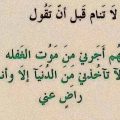 لَا تَنام قَبل أنّ تَقُول
هُم أَجرني مِنَ مَوُت الغَفله
لَا تأخذني مِن الدُنيَآ إلَا وأن
راضٍ عني